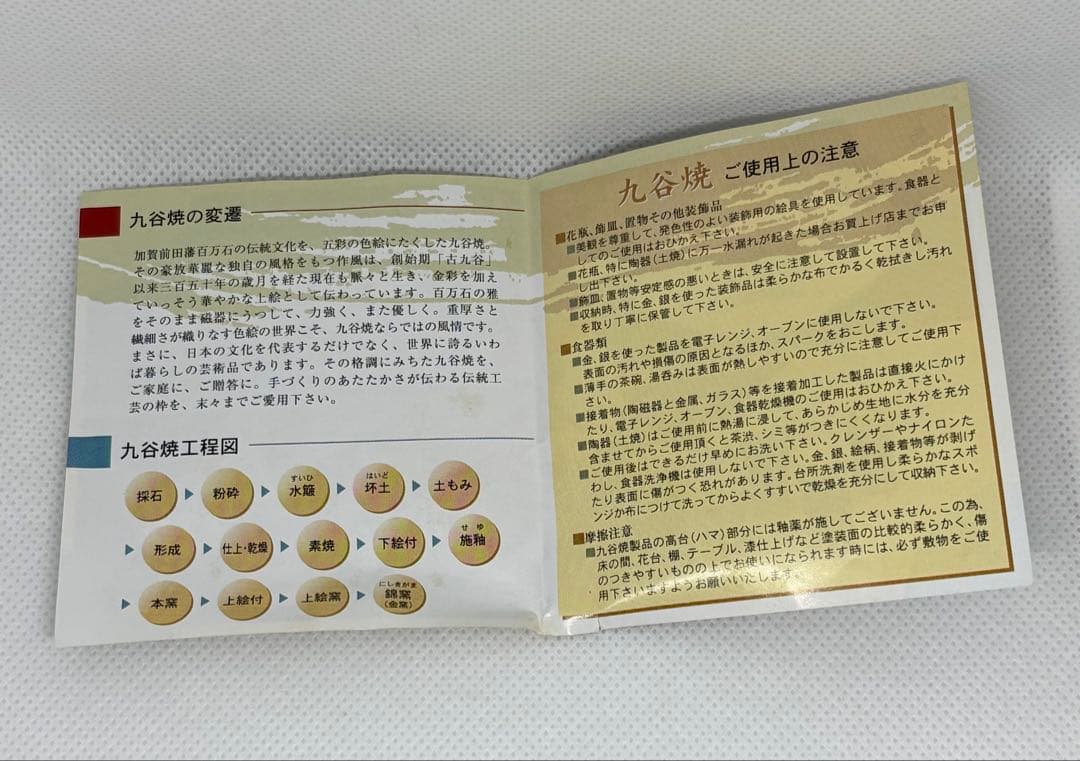 九谷焼の変遷
加賀前田藩百万石の伝統文化を、五彩の色絵にたくした九谷焼。
その豪放華麗な独自の風格をもつ作風は、創始期「古九谷」
以来三百五十年の歳月を経た現在も脈々と生き、金彩を加え
ていっそう華やかな上絵として伝わっています。百万石の雅
をそのまま磁器にうつして、力強く、また優しく。重厚さと
繊細さが織りなす色絵の世界こそ、九谷焼ならではの風情です。
まさに、日本の文化を代表するだけでなく、世界に誇るいわ
ば暮らしの芸術品であります。その格調にみちた九谷焼を、
ご家庭に、ご贈答に。手づくりのあたたかさが伝わる伝統工
芸の枠を、末々までご愛用下さい。
九谷焼工程図
採石
粉砕
すいひ
水簸
はいど
坏土
土もみ
形成
仕上・乾燥
素焼
下絵付
せゆ
施釉
本窯
上絵付
上絵窯
にしきがま
錦窯
(金窯)
九谷焼 ご使用上の注意
■花瓶、飾皿、置物その他装飾品
■美観を尊重して、発色性のよい装飾用の絵具を使用しています。食器と
してのご使用はおひかえ下さい。
■花瓶、特に陶器(土焼)に万一水漏れが起きた場合お買上げ店までお申
し出下さい。
■飾皿、置物等安定感の悪いときは、安全に注意して設置して下さい。
■収納時、特に金、銀を使った装飾品は柔らかな布でかるく乾拭きし汚れ
を取り丁寧に保管して下さい。
■食器類
■金、銀を使った製品を電子レンジ、オーブンに使用しないで下さい。
表面の汚れや損傷の原因となるほか、スパークをおこします。
■薄手の茶碗、湯呑みは表面が熱しやすいので充分に注意してご使用下
さい。
■接着物(陶磁器と金属、ガラス)等を接着加工した製品は直接火にかけ
たり、電子レンジ、オーブン、食器乾燥機のご使用はおひかえ下さい。
■陶器(土焼)はご使用前に熱湯に浸して、あらかじめ生地に水分を充分
含ませてからご使用頂くと茶渋、シミ等がつきにくくなります。
■ご使用後はできるだけ早めにお洗い下さい。クレンザーやナイロンた
わし、食器洗浄機は使用しないで下さい。金、銀、絵柄、接着物等が剥げ
たり表面に傷がつく恐れがあります。台所洗剤を使用し柔らかなスポ
ンジか布につけて洗ってからよくすすいで乾燥を充分にして収納下さい。
■摩擦注意
■九谷焼製品の高台(ハマ)部分には釉薬が施してございません。この為、
床の間、花台、棚、テーブル、漆仕上げなど塗装面の比較的柔らかく、傷
のつきやすいものの上でお使いになられます時には、必ず敷物をご使
用下さいますようお願いいたします。